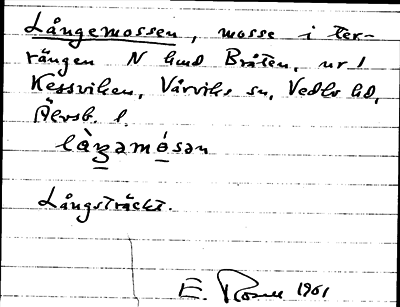 Långemossen, mosse i ter-
rängen N hmd Bråten, nr 1
Kessviken, Vårviks sn, Vedbo hd,
Älvsb. l.
Långsträckt.
E. 1961